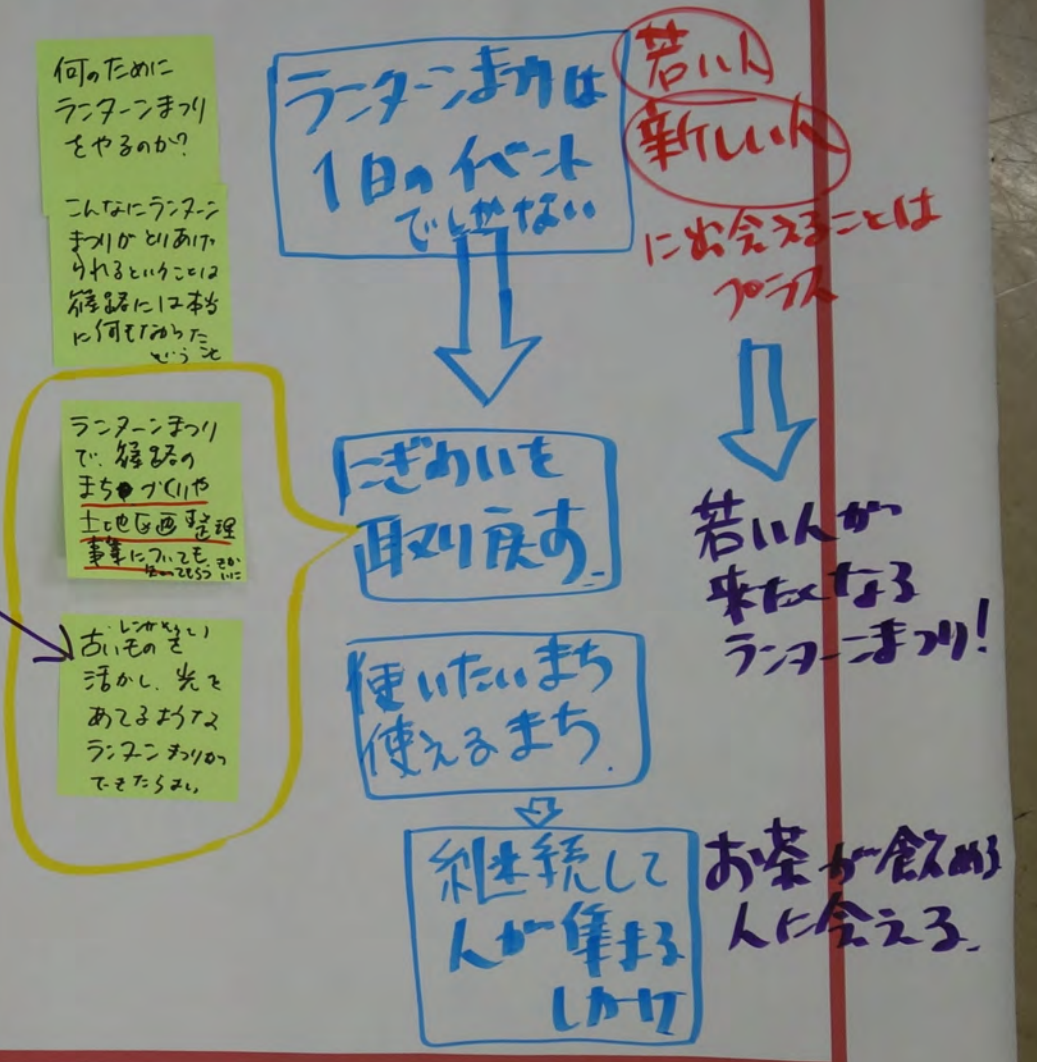 何のために
ランターンまつり
をやるのか?
こんなにランタン
まつりがとりあげ
られるということは
篠路には本当
に何もなかった
ということ
ランターンまつり
で、篠路の
まちづくりや
土地区画整理
事業についても、
知ってもらう
古いものを
活かし、光を
あてるような
ランタンまつりが
できたらよい
ランターンまつりは
1日のイベント
でしかない
にぎわいを
取り戻す
使いたいまち
使えるまち
継続して
人が集まる
しかけ
若い人
新しい人
に出会えることは
プラス
若い人が
来たくなる
ランターンまつり!
お茶が飲める
人に会える